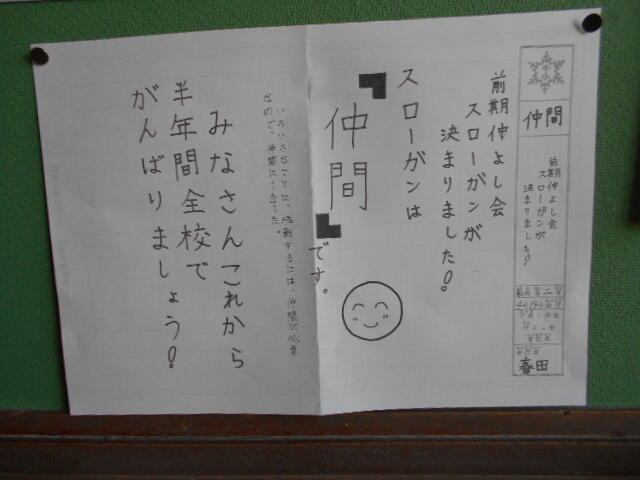 仲間
前期仲よし会
スローガンが
決まりました!
春田
前期仲よし会
スローガンが
決まりました!
スローガンは
『仲間』です。
いろいろなことに、挑戦するには、仲間が必要
なので、仲間にしました。
みなさんこれから
半年間全校で
がんばりましょう!